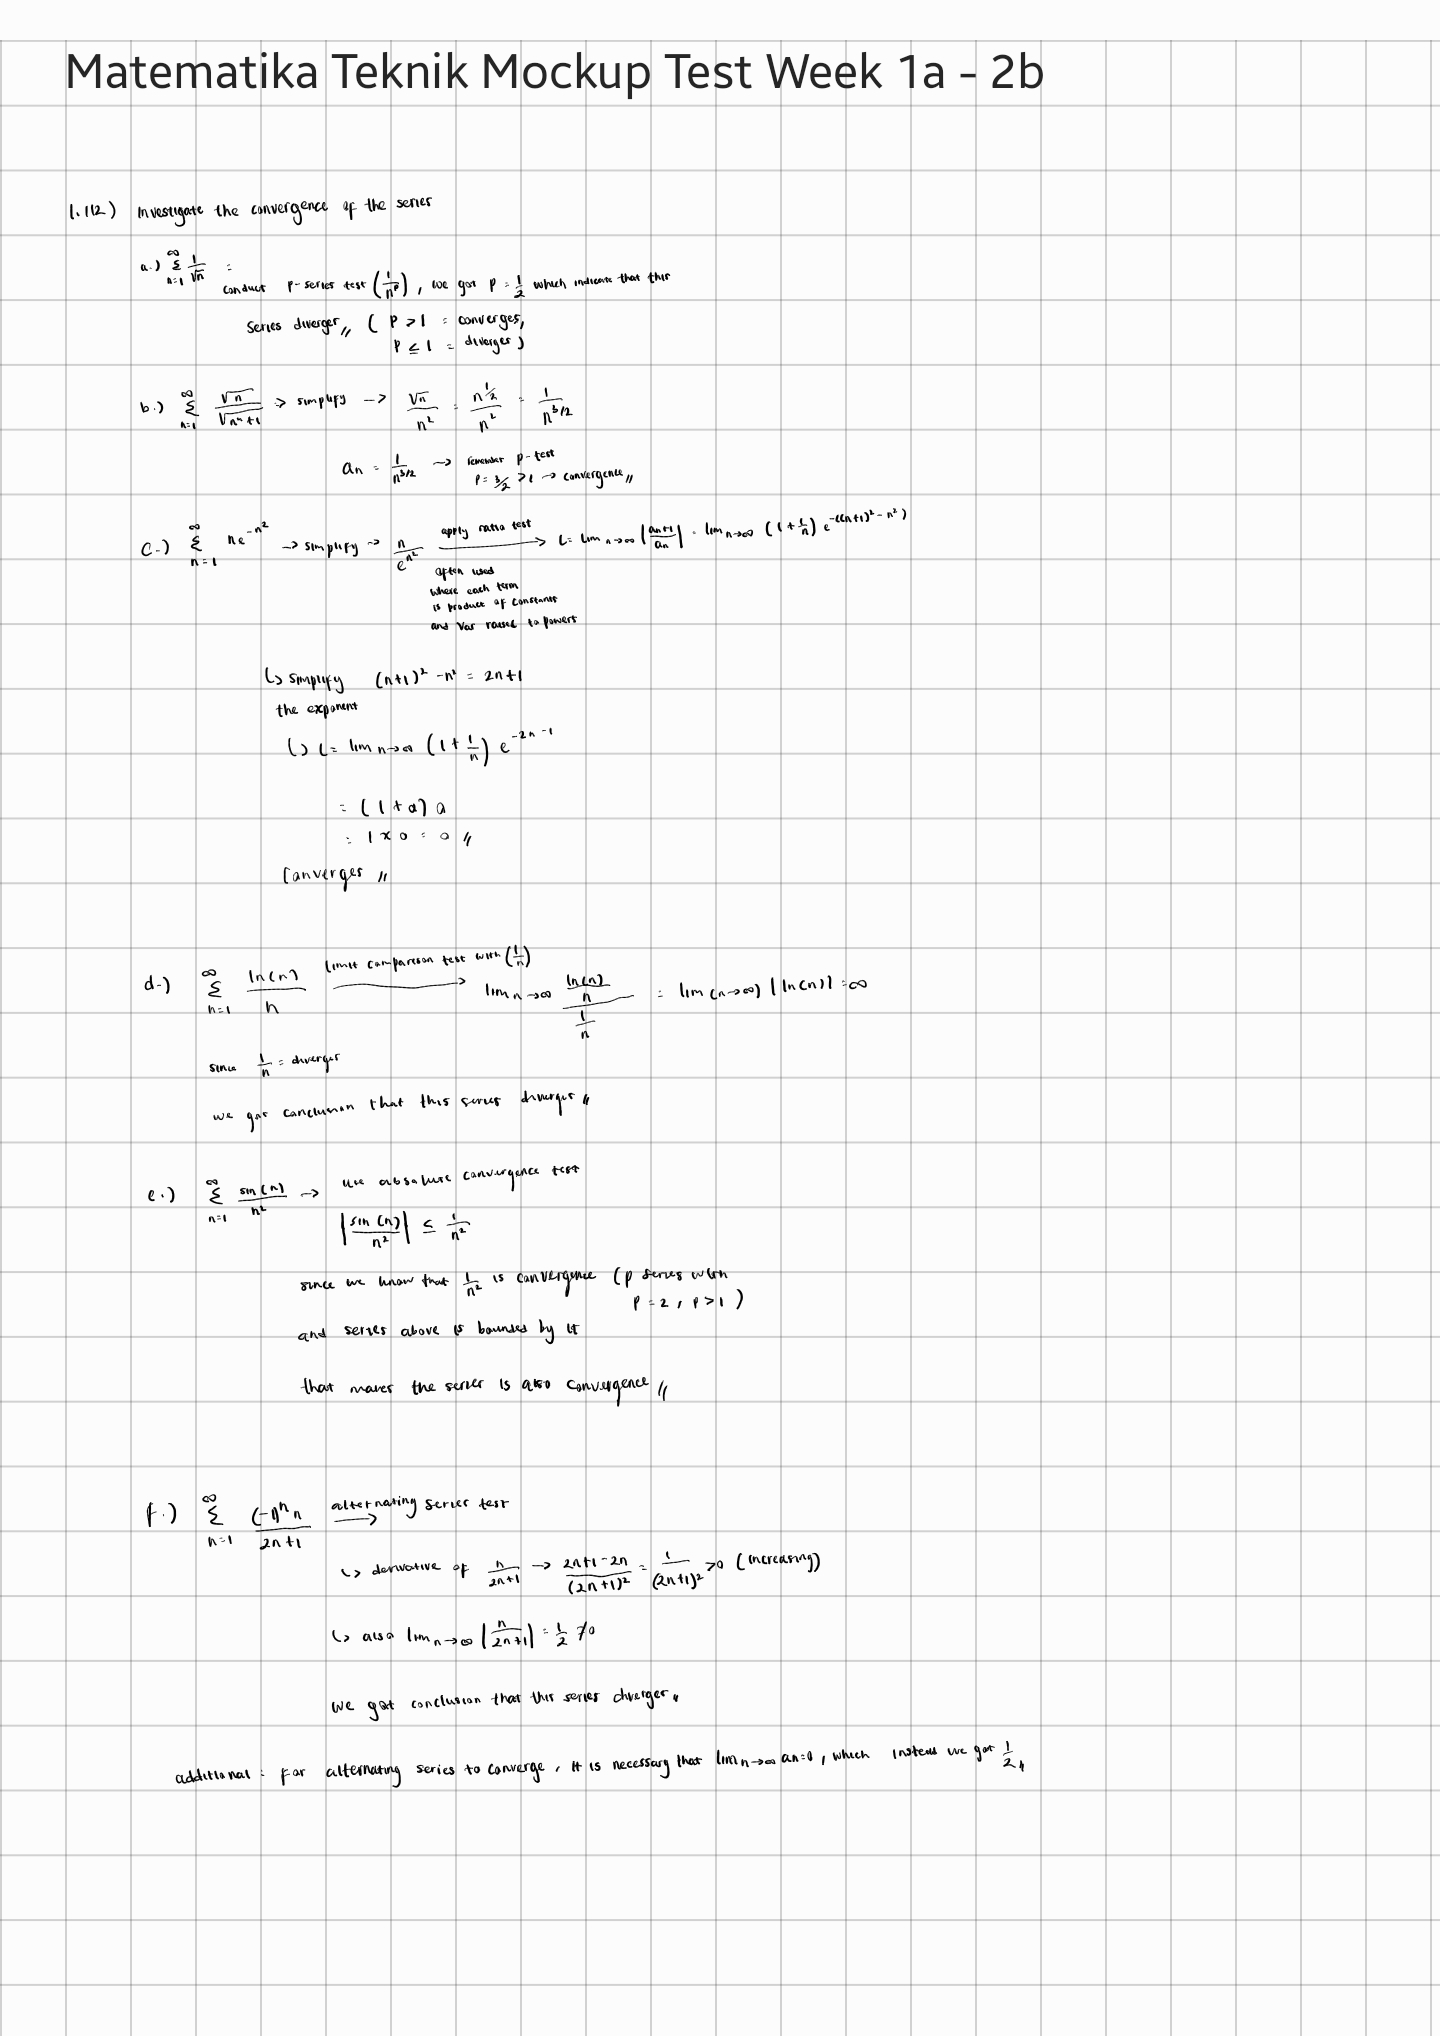 Matematika Teknik Mockup Test Week 1a - 2b
1.112) Investigate the convergence of the series
a.) ∞ Σ n=1 1/√n =
conduct p-series test (1/n^p), we got p = 1/2 which indicate that this
series diverges // ( p > 1 = converges,
p ≤ 1 = diverges )
b.) ∞ Σ n=1 √n/√(n⁴+1) -> simplify -> √n/n² = n^(1/2)/n² = 1/n^(3/2)
an = 1/n^(3/2) -> remember p-test
p = 3/2 > 1 -> convergence //
c.) ∞ Σ n=1 ne^(-n²) -> simplify -> n/e^(n²) apply ratio test L = lim n->∞ |an+1/an| = lim n->∞ (1+1/n) e^(-((n+1)²-n²))
often used
where each term
is product of constants
and var raised to powers
↳ simplify (n+1)² - n² = 2n+1
the exponent
↳ L = lim n->∞ (1+1/n) e^(-2n-1)
= (1+0) 0
= 1 x 0 = 0 //
Converges //
d.) ∞ Σ n=1 ln(n)/n limit comparison test with (1/n) lim n->∞ (ln(n)/n)/(1/n) = lim(n->∞) |ln(n)| = ∞
since 1/n = diverges
we got conclusion that this series diverges //
e.) ∞ Σ n=1 sin(n)/n² -> use absolute convergence test
|sin(n)/n²| ≤ 1/n²
since we know that 1/n² is convergence (p series with
p = 2, p > 1 )
and series above is bounded by it
that makes the series is also convergence //
f.) ∞ Σ n=1 (-1)^n n/2n+1 alternating series test
↳ derivative of n/2n+1 -> 2n+1-2n/(2n+1)² = 1/(2n+1)² > 0 (increasing)
↳ also lim n->∞ |n/2n+1| = 1/2 ≠ 0
we got conclusion that this series diverges //
additional : for alternating series to converge, it is necessary that lim n->∞ an = 0, which instead we got 1/2 //